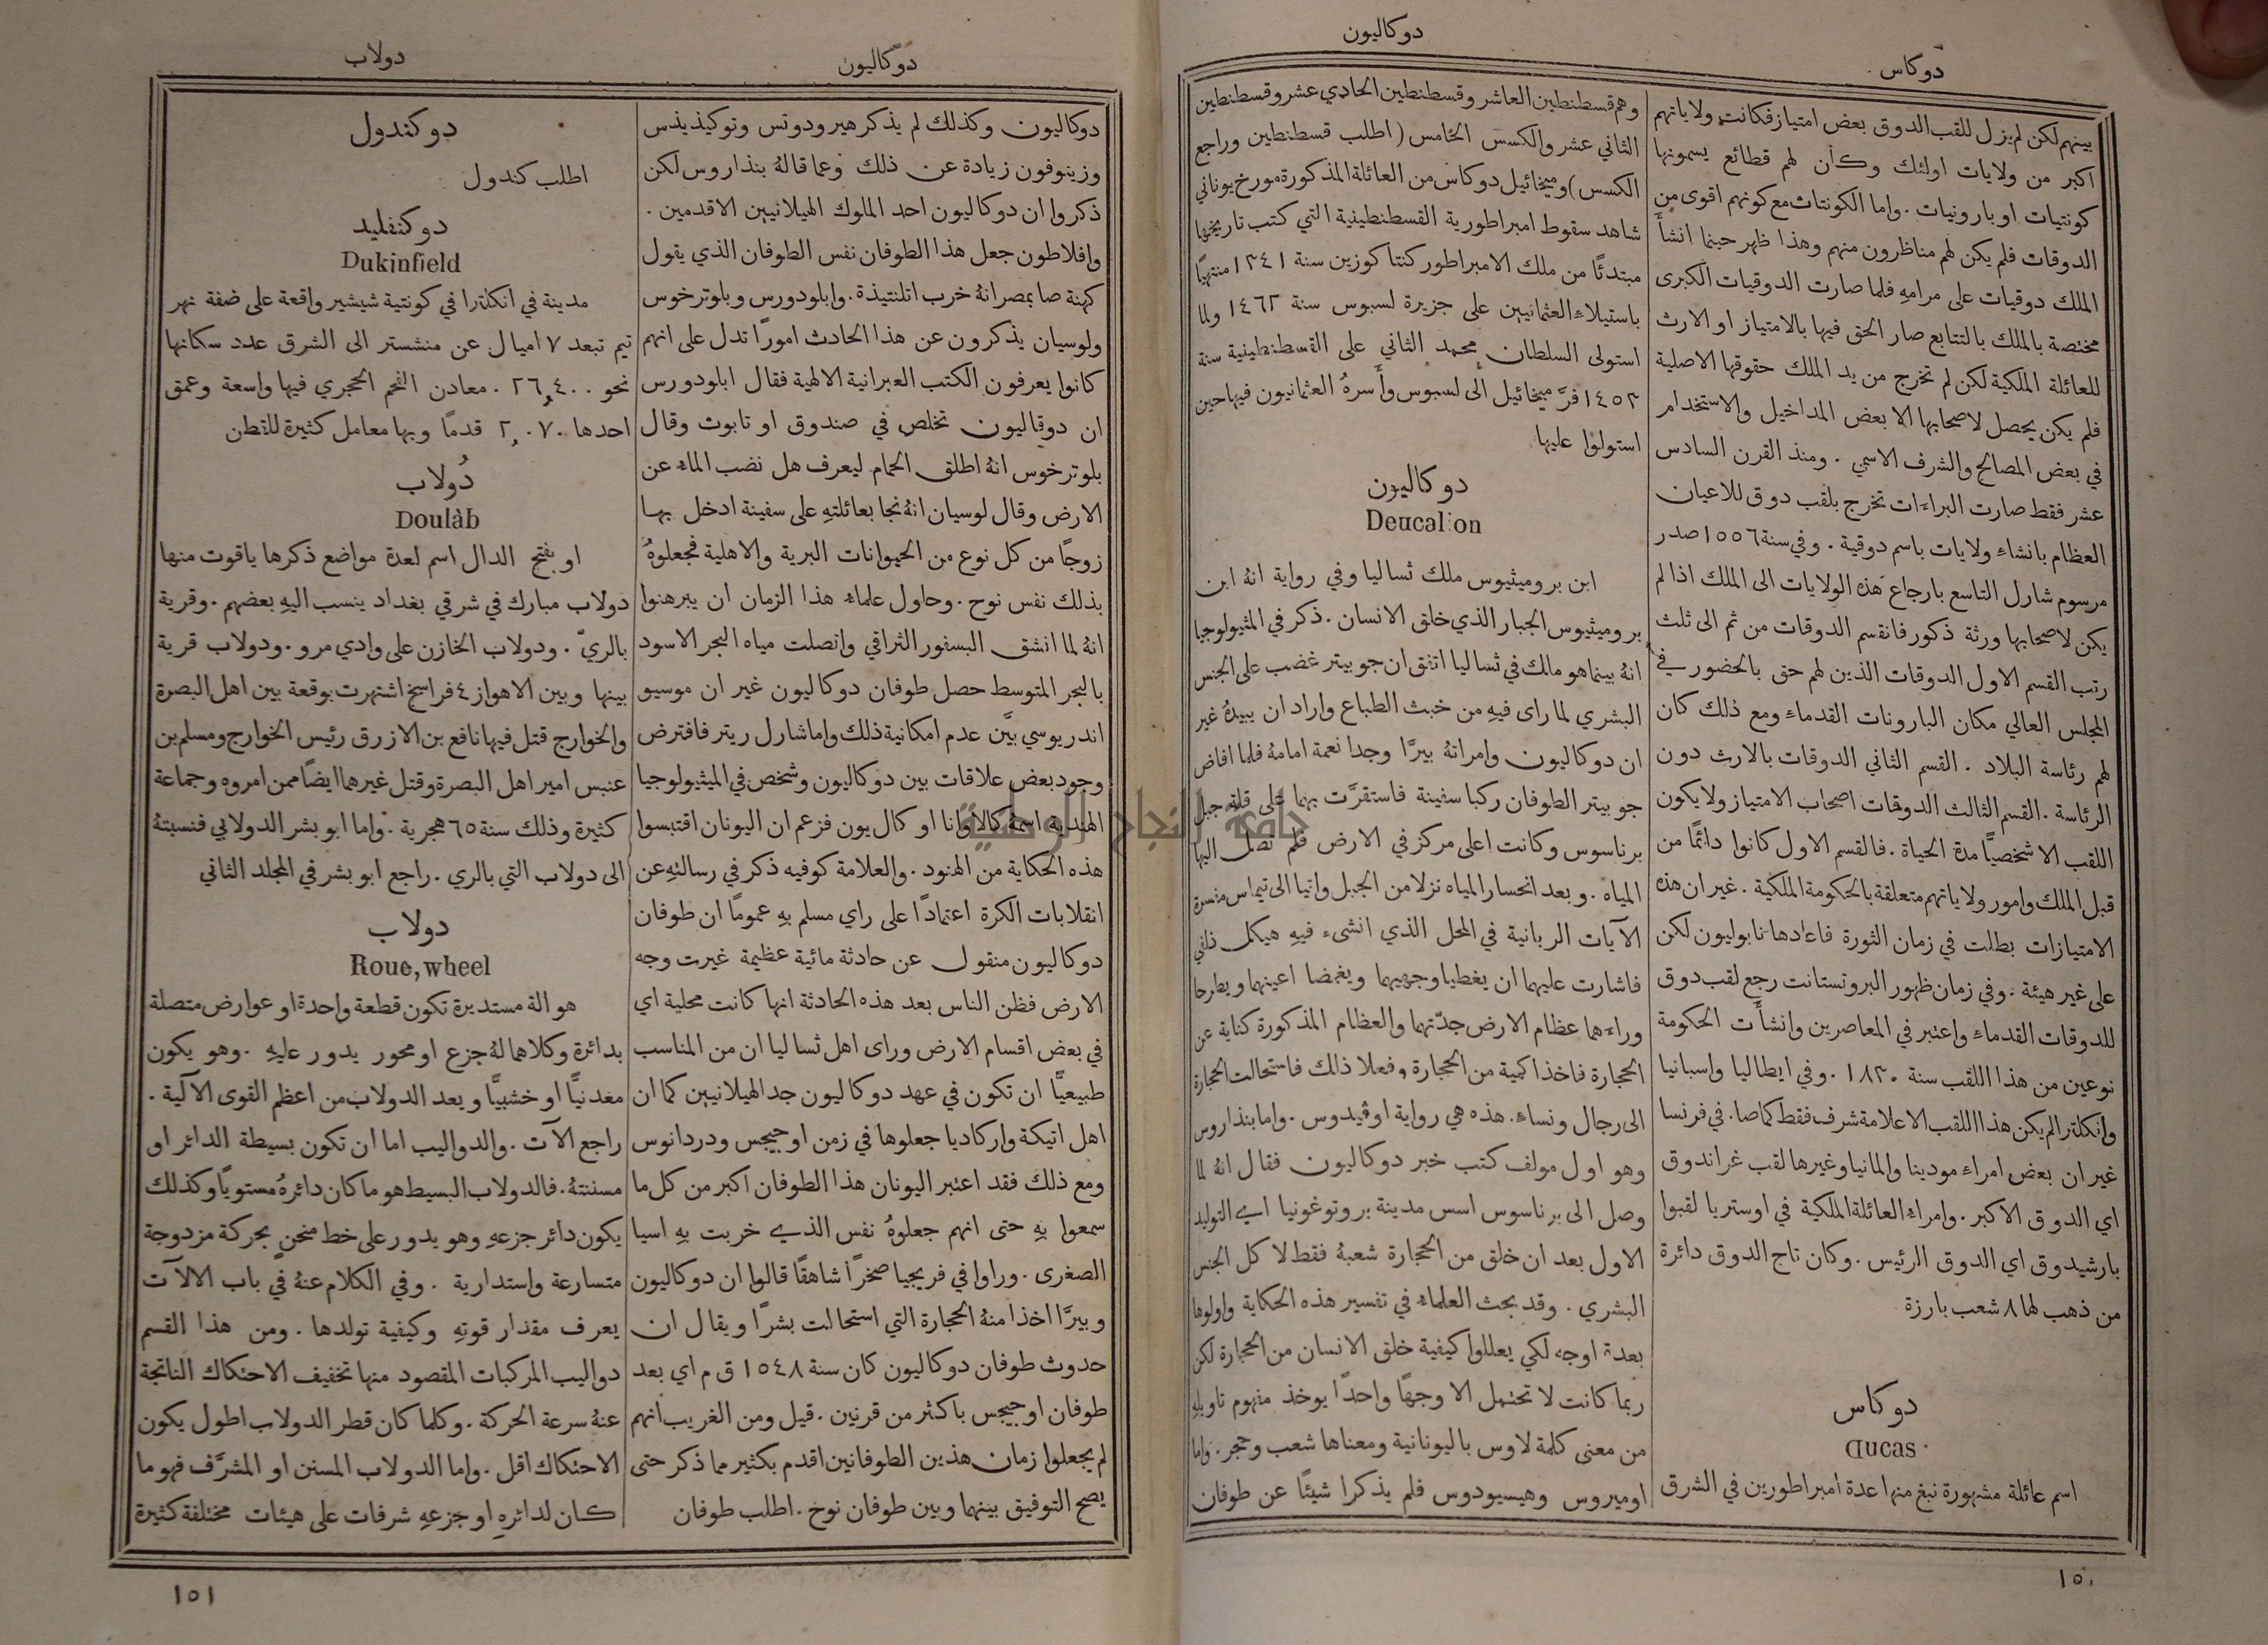 دوكاس
دوكاليون
بينهم لكن لم يزل للقب الدوق بعض امتياز فكانت ولاياتهم
اكبر من ولايات اولئك وكأن لهم قطائع يسمونها
كونتيات او بارونيات . واما الكونتات مع كونهم اقوى من
الدوقات فلم يكن لهم مناظرون منهم وهذا ظهر حينما انشأ
الملك دوقيات على مرامهِ فلما صارت الدوقيات الكبرى
مختصة بالملك بالتتابع صار الحق فيها بالامتياز او الارث
للعائلة الملكية لكن لم تخرج من يد الملك حقوقها الاصلية
فلم يكن يحصل لاصحابها الا بعض المداخيل والاستخدام
في بعض المصالح والشرف الاسمي . ومنذ القرن السادس
عشر فقط صارت البراءات تخرج بلقب دوق للاعيان
العظام بانشاء ولايات باسم دوقية . وفي سنة ١٥٥٦ صدر
مرسوم شارل التاسع بارجاع هذه الولايات الى الملك اذا لم
يكن لاصحابها ورثة ذكور فانقسم الدوقات من ثم الى ثلث
رتب القسم الاول الدوقات الذين لهم حق بالحضور في
المجلس العالي مكان البارونات القدماء ومع ذلك كان
لهم رئاسة البلاد . القسم الثاني الدوقات بالارث دون
الرئاسة . القسم الثالث الدوقات اصحاب الامتياز ولا يكون
اللقب الا شخصيًّا مدة الحياة . فالقسم الاول كانوا دائمًا من
قبل الملك وامور ولاياتهم متعلقة بالحكومة الملكية . غير ان هذه
الامتيازات بطلت في زمان الثورة فاعادها نابوليون لكن
على غير هيئة . وفي زمان ظهور البروتستانت رجع لقب دوق
للدوقات القدماء واعتبر في المعاصرين وانشأت الحكومة
نوعين من هذا اللقب سنة ١٨٣٠ . وفي ايطاليا واسبانيا
وانكلترا لم يكن هذا اللقب الا علامة شرف فقط كما صار في فرنسا
غير ان بعض امراء مودينا والمانيا وغيرها لقب غراندوق
اي الدوق الاكبر . وامراء العائلة الملكية في اوستريا لقبوا
بارشيدوق اي الدوق الرئيس . وكان تاج الدوق دائرة
من ذهب لها ٨ شعب بارزة
دوكاس
Ducas
اسم عائلة مشهورة نبغ منها عدة امبراطورين في الشرق
وهم قسطنطين العاشر وقسطنطين الحادي عشر وقسطنطين
الثاني عشر والكسس الخامس ( اطلب قسطنطين وراجع
الكسس ) وميخائيل دوكاس من العائلة المذكورة مورخ يوناني
شاهد سقوط امبراطورية القسطنطينية التي كتب تاريخها
مبتدئًا من ملك الامبراطور كنتا كوزين سنة ١٣٤١ منتهيًا
باستيلاء العثمانيين على جزيرة لسبوس سنة ١٤٦٢ ولما
استولى السلطان محمد الثاني على القسطنطينية سنة
١٤٥٣ فرَّ ميخائيل الى لسبوس وأَسرهُ العثمانيون فيها حين
استولوا عليها
دوكاليون
Deucalion
ابن بروميثيوس ملك ثساليا وفي رواية انهُ ابن
بروميثيوس الجبار الذي خلق الانسان . ذكر في المثيولوجيا
انهُ بينما هو مالك في ثساليا اتفق ان جوبيتر غضب على الجنس
البشري لما راى فيهِ من خبث الطباع واراد ان يبيدهُ غير
ان دوكاليون وامراتهُ بيرَّا وجدا نعمة امامهُ فلما افاض
جوبيتر الطوفان ركبا سفينة فاستقرَّت بهما على قلة جبل
برناسوس وكانت اعلى مركز في الارض فلم تصل اليها
المياه . وبعد انحسار المياه نزلا من الجبل واتيا الى تيماس مفسرة
الآيات الربانية في المحل الذي انشىء فيهِ هيكل ذلفي
فاشارت عليهما ان يغطيا وجهيهما ويغمضا اعينهما ويطرحا
وراءهما عظام الارض جدَّتهما والعظام المذكورة كناية عن
الحجارة فاخذا كمية من الحجارة وفعلا ذلك فاستحالت الحجارة
الى رجال ونساء . هذه هي رواية اوڤيدوس . واما بنداروس
وهو اول مولف كتب خبر دوكاليون فقال انهُ لما
وصل الى برناسوس اسس مدينة بروتوغونيا اي التوليد
الاول بعد ان خلق من الحجارة شعبهُ فقط لا كل الجنس
البشري . وقد بحث العلماء في تفسير هذه الحكاية واولوها
بعدة اوجه لكي يعللوا كيفية خلق الانسان من الحجارة لكن
ربما كانت لا تحتمل الا وجهًا واحدًا يوخذ مفهوم تاويلهِ
من معنى كلمة لاوس باليونانية ومعناها شعب وحجر . واما
اوميروس وهيسيودوس فلم يذكرا شيئًا عن طوفان
١٥٠
دوكاليون
دولاب
دوكاليون وكذلك لم يذكر هيرودوتس وتوكيذيذس
وزينوفون زيادة عن ذلك وعما قالهُ بنذاروس لكن
ذكروا ان دوكاليون احد الملوك الهيلانيين الاقدمين .
وافلاطون جعل هذا الطوفان نفس الطوفان الذي يقول
كهنة صا بمصر انهُ خرب اتلنتيذة . وابلودورس وبلوترخوس
ولوسيان يذكرون عن هذا الحادث امورًا تدل على انهم
كانوا يعرفون الكتب العبرانية الالهية فقال ابلودورس
ان دوقاليون تخلص في صندوق او تابوت وقال
بلوترخوس انهُ اطلق الحمام ليعرف هل نضب الماء عن
الارض وقال لوسيان انهُ نجا بعائلتهِ على سفينة ادخل بها
زوجًا من كل نوع من الحيوانات البرية والاهلية فجعلوهُ
بذلك نفس نوح . وحاول علماء هذا الزمان ان يبرهنوا
انهُ لما انشق البسفور الثراقي واتصلت مياه البحر الاسود
بالبحر المتوسط حصل طوفان دوكاليون غير ان موسيو
اندريوسي بيَّن عدم امكانية ذلك واما شارل ريتر فافترض
وجود بعض علاقات بين دوكاليون وشخص في الميثيولوجيا
الهندية اسمهُ كالاوانا او كال يون فزعم ان اليونان اقتبسوا
هذه الحكاية من الهنود . والعلامة كوفيه ذكر في رسالتهِ عن
انقلابات الكرة اعتمادًا على راي مسلم بهِ عمومًا ان طوفان
دوكاليون منقول عن حادثة مائية عظيمة غيرت وجه
الارض فظن الناس بعد هذه الحادثة انها كانت محلية اي
في بعض اقسام الارض وراى اهل ثساليا ان من المناسب
طبيعيًّا ان تكون في عهد دوكاليون جد الهيلانيين كما ان
اهل اتيكة واركاديا جعلوها في زمن اوجيجس ودردانوس
ومع ذلك فقد اعتبر اليونان هذا الطوفان اكبر من كل ما
سمعوا بهِ حتى انهم جعلوهُ نفس الذي خربت بهِ اسيا
الصغرى . وراوا في فريجيا صخرًا شاهقًا قالوا ان دوكاليون
وبيرَّا اخذا منهُ الحجارة التي استحالت بشرًا ويقال ان
حدوث طوفان دوكاليون كان سنة ١٥٤٨ ق م اي بعد
طوفان اوجيجس باكثر من قرنين . قيل ومن الغريب انهم
لم يجعلوا زمان هذين الطوفانين اقدم بكثير مما ذكر حتى
يصح التوفيق بينهما وبين طوفان نوح . اطلب طوفان
دوكندول
اطلب كندول
دوكنفليد
Dukinfield
مدينة في انكلترا في كونتية شيشير واقعة على ضفة نهر
تيم تبعد ٧ اميال عن منشستر الى الشرق عدد سكانها
نحو ٢٦,٤٠٠ . معادن الفحم الحجري فيها واسعة وعمق
احدها ٢,٠٧٠ قدمًا وبها معامل كثيرة للقطن
دُولاب
Doulàb
او بفتح الدال اسم لعدة مواضع ذكرها ياقوت منها
دولاب مبارك في شرقي بغداد ينسب اليهِ بعضهم . وقرية
بالريّ . ودولاب الخازن على وادي مرو . ودولاب قرية
بينها وبين الاهواز ٤ فراسخ اشتهرت بوقعة بين اهل البصرة
والخوارج قتل فيها نافع بن الازرق رئيس الخوارج ومسلم بن
عنبس امير اهل البصرة وقتل غيرهما ايضًا ممن امروه وجماعة
كثيرة وذلك سنة ٦٥ هجرية . واما ابو بشر الدولابي فنسبتهُ
الى دولاب التي بالري . راجع ابو بشر في المجلد الثاني
دولاب
Roue, wheel
هو الة مستديرة تكون قطعة واحدة او عوارض متصلة
بدائرة وكلاهما لهُ جزع او محور يدور عليهِ . وهو يكون
معدنيًّا او خشبيًّا ويعد الدولاب من اعظم القوى الآلية .
راجع الآت . والدواليب اما ان تكون بسيطة الدائر او
مسننتهُ . فالدولاب البسيط هو ما كان دائرهُ مستويًا وكذلك
يكون دائر جزعهِ وهو يدور على خط منحنٍ بحركة مزدوجة
متسارعة واستدارية . وفي الكلام عنهُ في باب الالآت
يعرف مقدار قوتهِ وكيفية تولدها . ومن هذا القسم
دواليب المركبات المقصود منها تخفيف الاحتكاك الناتجة
عنهُ سرعة الحركة . وكلما كان قطر الدولاب اطول يكون
الاحتكاك اقل . واما الدولاب المسنن او المشرَّف فهو ما
كان لدائرهِ او جزعهِ شرفات على هيئات مختلفة كثيرة
١٥١
جامعة النجاح الوطنية